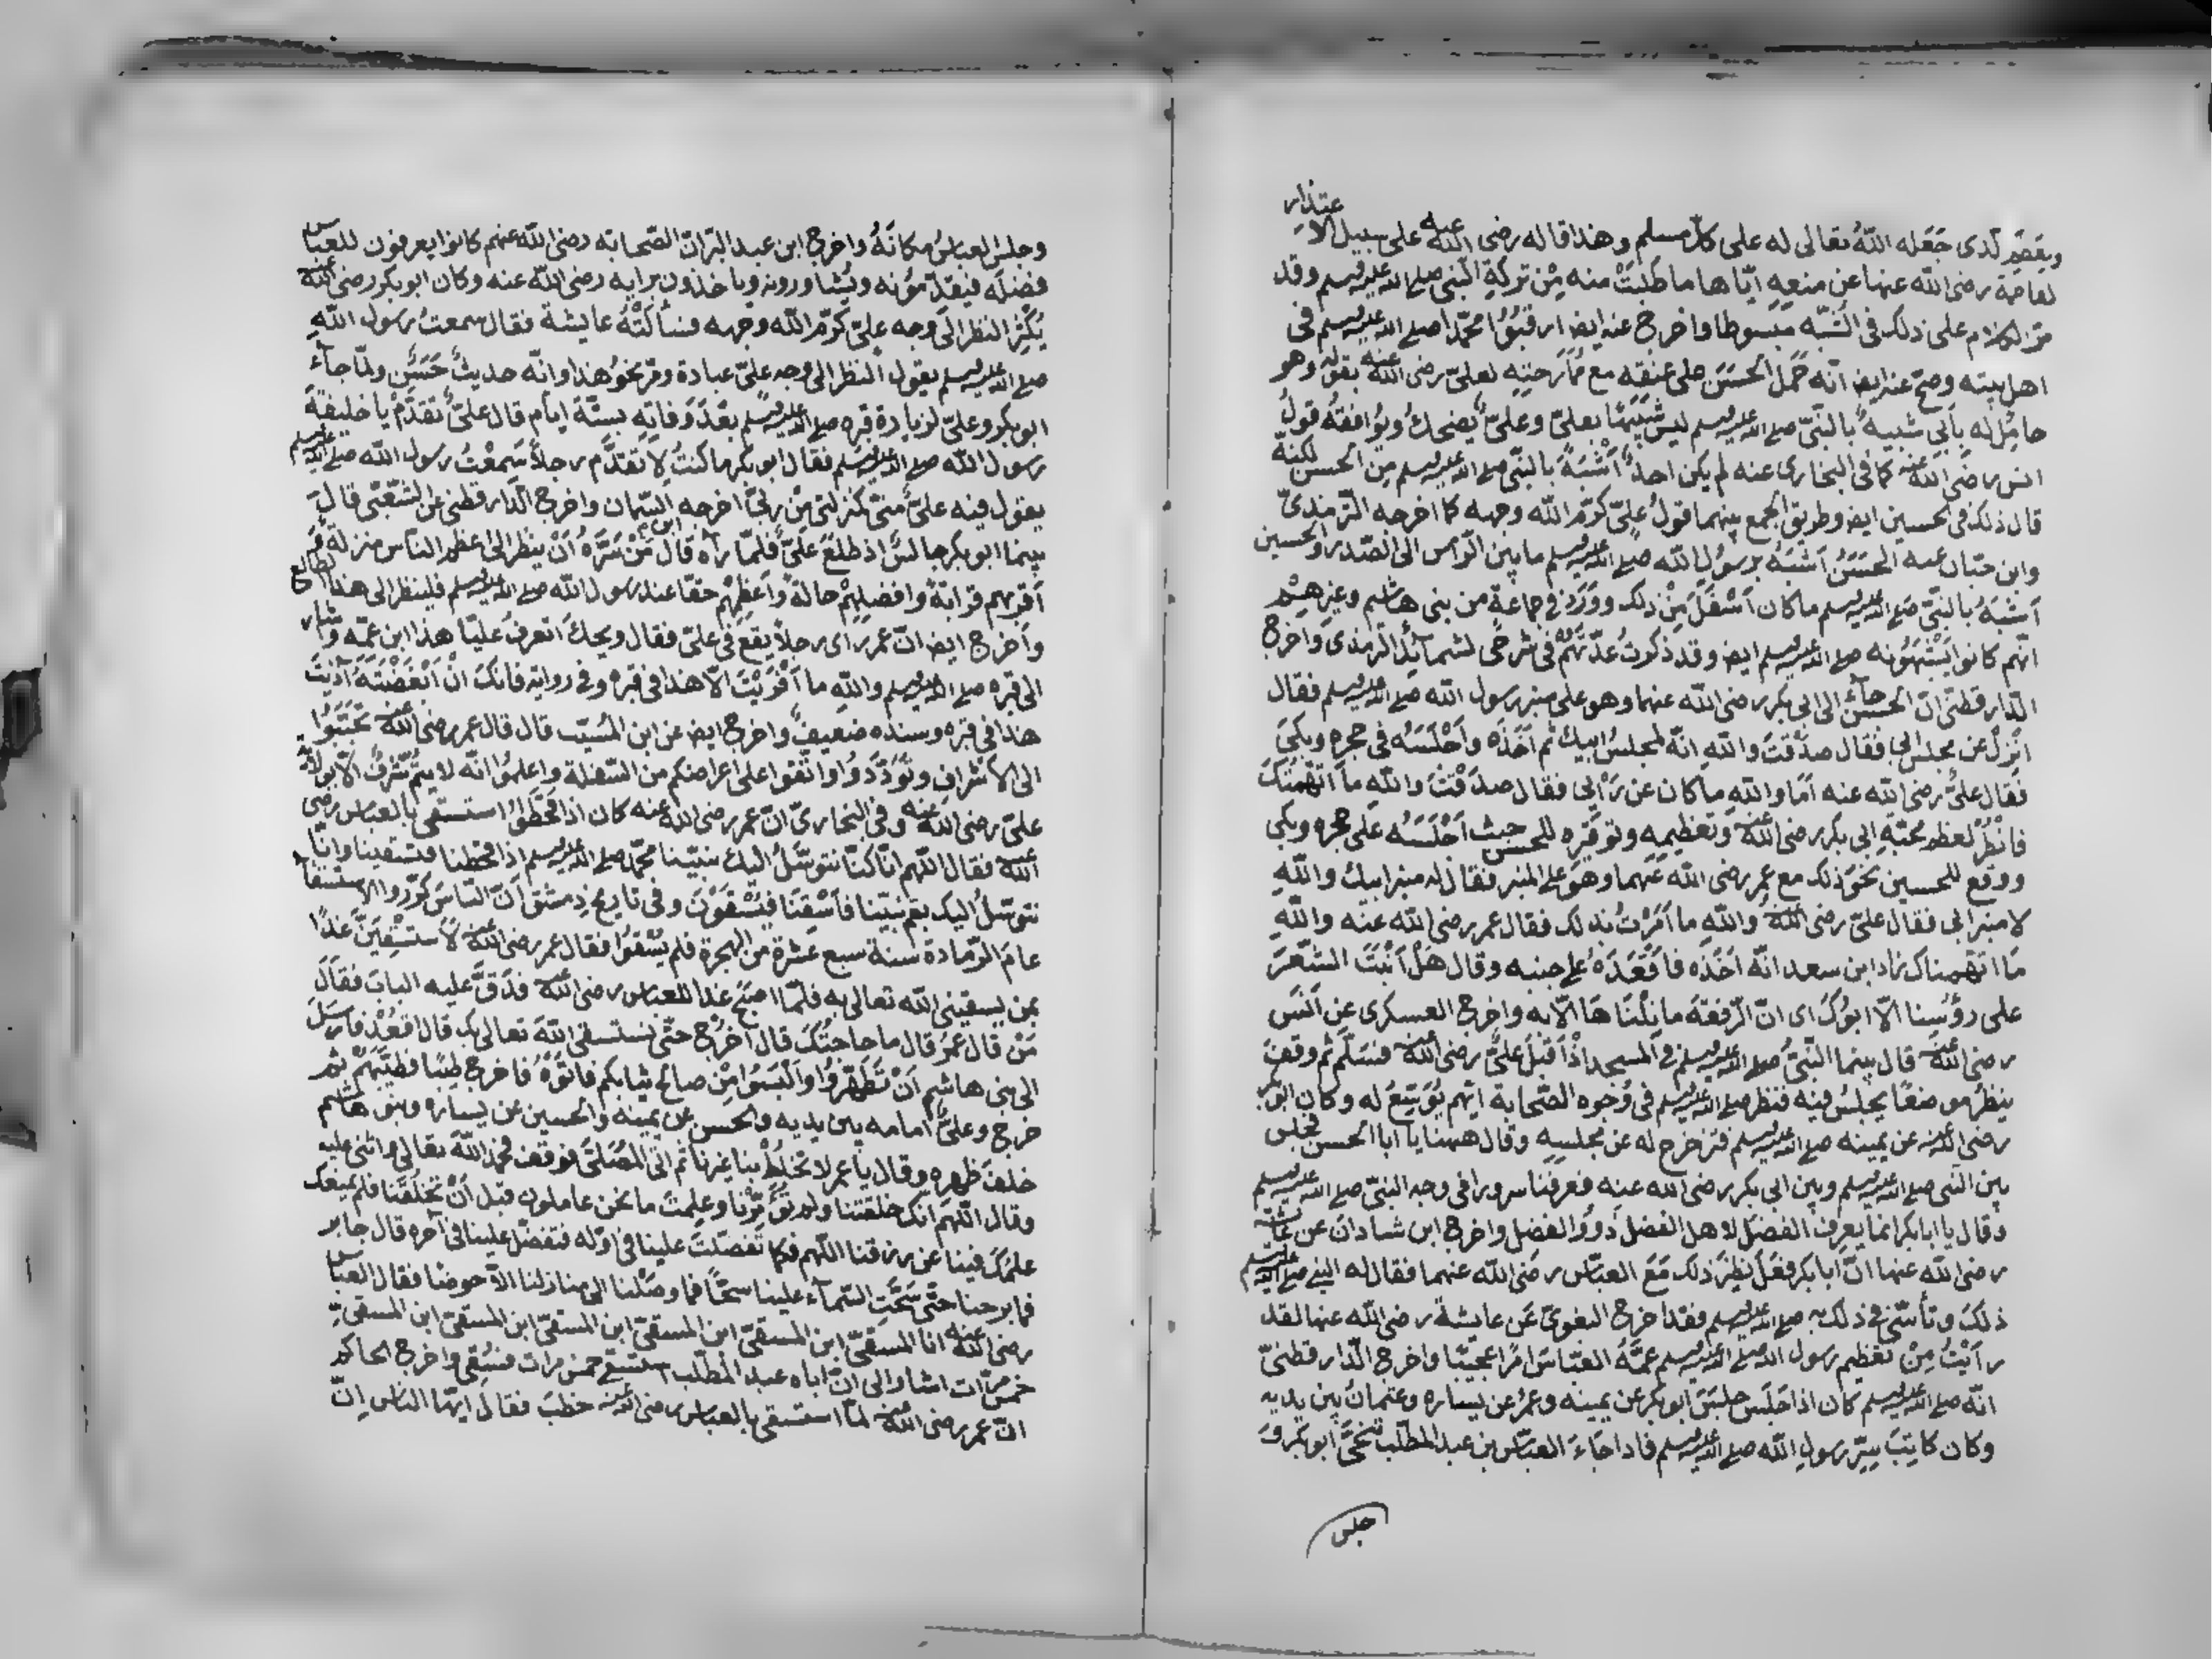 وبعضهم لدى جَعَله اللّهُ تعالى له على كلّ مسلم وهذا قاله رضى اللّه عنه على سبيل الاعتذار
لفاطمة رضى اللّه عنها عن منعِهِ ايّاها ما طلبَتْ منه مِنْ تركةِ النّبى صلى الله عليه وسلم وقد
مرّ الكلام على ذلك فى الشّبه مبسوطا واخرج عنه ايضا ارقبُوُا محمّدا صلى الله عليه وسلم فى
اهل بيته وصحّ عنه ايضا انّه حَمَل الحَسَن على عنقه مع مُمازحتِهِ لعلىّ رضى اللّه عنه بقوله وهو
حامِلٌ له بأبى شبيهٌ بالنّبىّ صلى الله عليه وسلم ليس شبيهًا بعلىّ وعلىٌّ يضحك ويُوافقهُ قولُ
انس رضى اللّه عنه كما فى البخارى عنه لم يكن احدٌ اَشْبَهَ بالنبىّ صلى الله عليه وسلم مِن الحسن لكنّه
قال ذلك فى الحسين ايضا وطريق الجمع بينهما قولُ علىّ كرّم اللّه وجهه كما اخرجه الترمذىّ
وابن حبّان عنه الحَسَنُ اَشبَهُ برسُولِ اللّه صلى الله عليه وسلم ما بين الرّأس الى الصّدر والحسين
اَشبَهُ بالنبىّ صلى الله عليه وسلم ما كان اَسْفلَ مِنْ ذلك ووَرَدَ فى جماعةٍ من بنى هاشم وغيرهم
انّهم كانوا يشْبهُونه صلى الله عليه وسلم ايضا وقد ذكرتُ عدّتَهُمْ فى شرحى لشمآئل الترمذى واَخرج
الدّارقطنى انّ الحسنَ جآءَ الى ابى بكر رضى اللّه عنهما وهو على منبر رسول اللّه صلى الله عليه وسلم فقال
انْزِلْ عن مجلس ابى فقال صدَقْتَ واللّهِ انّه لمجلسُ ابيك ثم اَخَذَه واَجْلَسَه فى حجره وبكَى
فَقال علىٌّ رضى اللّه عنه اَمَا واللّهِ ما كان عن رَأْيى فقال صدَقْتَ واللّهِ ما اتّهمْتُكَ
فانْظُرْ لعظم محبّةِ ابى بكر رضى اللّه عنه وتعظيمِه وتوقيرِه للحسن حيث اَجْلَسَهُ على حجره وبكى
ووقع للحسين نحوُ ذلك مع عمر رضى اللّه عنهما وهو على المنبر فقال له منبر ابيك واللّهِ
لا منبر ابى فقال علىّ رضى اللّه عنه واللّهِ ما اَمَرْتُ بذلك فقال عمر رضى اللّه عنه واللّهِ
مَا اتّهمناك زاد ابن سعد انّه اَخَذَه فاَقْعَدَهُ على جنبه وقال هَلْ اَنْبَتَ الشّعْرَ
على رؤُسِنا الّا ابوُكَ اى انّ الرّفعَةَ ما نِلْنَاهَا الّا به واخرج العسكرى عن اَنَسٍ
رضى اللّه عنه قال بينما النّبىُّ صلى الله عليه وسلم فى المسجد اِذْ اَقبلَ علىٌّ رضى اللّه عنه فسَلّم ثم وقفَ
ينظرُ موضعًا يجلسُ فيه فنظر صلى الله عليه وسلم فى وُجوهِ الصّحابة ايُّهم يُوَسّعُ له وكان ابوبكر
رضى اللّه عنه عن يمينه صلى الله عليه وسلم فتزحزح له عن مجلسِهِ وقال ههنا يا ابا الحسن فجلس
بين النّبى صلى الله عليه وسلم وبين ابى بكر رضى اللّه عنه فعرفنا سرورا فى وجه النبىّ صلى الله عليه وسلم
وقال يا ابابكر انما يعرف الفضلَ لاهل الفضل ذَوُوا الفضل واخرج ابن شاذانَ عن عائشة
رضى اللّه عنها انّ ابابكر فعَلَ نظيرَ ذلك مَعَ العبّاس رضى اللّه عنهما فقال له النبى صلى الله عليه وسلم
ذلكَ وتأسّى فى ذلك به صلى الله عليه وسلم فقد اخرج البغوىّ عَن عايشة رضى اللّه عنها لقد
رأيْتُ مِنْ تعظيم رسول اللّه صلى الله عليه وسلم عمَّهُ العبّاسَ امرًا عجيبًا واخرج الدّارقطنىّ
انّه صلى الله عليه وسلم كان اذا جَلَسَ جلسَ ابوبكر عن يمينه وعمرُ عن يساره وعثمانُ بين يديه
وكان كاتِبَ سِرّ رسولِ اللّه صلى الله عليه وسلم فاذا جَاءَ العبّاس بن عبد المطلّب تنحّى ابوبكر وَ
جلس
وجلس العباسُ مكانَهُ واخرج ابن عبد البرّ انّ الصّحابة رضى اللّه عنهم كانوا يعرفون للعباس
فضلَه فيقدّمُونه ويُشاورونه وياخذون برايه رضى اللّه عنه وكان ابوبكر رضى اللّه عنه
يُكثِرُ النظرَ الى وجه علىّ كرّم اللّه وجهه فسَأَلتْهُ عايشة فقال سمعتُ رسول اللّه
صلى الله عليه وسلم يقول النظر الى وجه علىّ عبادة ومَرّ نحوُ هذا وانّه حديثٌ حَسَنٌ ولمّا جآءَ
ابوبكر وعلىّ لزيارة قبره صلى الله عليه وسلم بعْدَ وَفاتِه بستّة ايام قال علىٌّ تقدَّمْ يا خليفةَ
رسول اللّه صلى الله عليه وسلم فقال ابوبكر ما كنتُ لاتقدَّم رجلًا سَمِعْتُ رسول اللّه صلى الله عليه وسلم
يقول فيه علىٌّ منّى كمنزلتى مِنْ ربّى اخرجه ابن السّمان واخرج الدّارقطنى عن الشّعبى قال
بينما ابوبكر جالسٌ اذ طلَعَ علىٌّ فلمّا رآه قال مَنْ سَرّهُ اَنْ ينظر الى اعظم النّاس منزلةً و
اَقربهم قرابةً وافضلِهمْ حالةً واَعظمِهم حقّا عند رسول اللّه صلى الله عليه وسلم فلينظر الى هذا الطالع
واَخرج ايضا انّ عمر راى رجلًا يقَعُ فى علىّ فقال ويحكَ اتعرفُ عليّا هذا ابن عمّه واشار
الى قبره صلى الله عليه وسلم واللّهِ ما اذَيْتَ الّا هذا فى قبره وفى رواية فانّكَ انْ اَبْغَضْتَه آذَيْتَ
هذا فى قبره وسنده ضعيفٌ واخرج ايضا عن ابن المُسَيّب قال قال عمر رضى اللّه عنه تَحَبّبَوُا
الى الاَشراف وتَوَدّدُوا واتّقوا على اعراضكم من السّفلة واعلموا انّه لا يتمُّ شرفٌ الّا بولاية
علىّ رضى اللّه عنه وفى البخارىّ انّ عمر رضى اللّه عنه كان اذا قحَطُوا استسقى بالعباس رضى
اللّه عنه فقال اللّهم انّا كنّا نتوسّلُ اليك بنبيّنا محمّد صلى الله عليه وسلم اذا قحطنا فتسقينا وانّا
نتوسّلُ اليك بعمّ نبيّنا فاَسْقِنَا فيُسْقَوْنَ وفى تاريخ دِمشق اَنّ النّاسَ كرّروا الاستسقآء
عامَ الرّمادة سنة سبع عشرة من الهجرة فلم يُسْقَوُا فقال عمر رضى اللّه عنه لاَستسْقِيَنّ غدًا
بمن يسقينى اللّه تعالى به فلمّا اصبَحَ غدا للعباس رضى اللّه عنه فدَقَّ عليه البابَ فقالَ
مَنْ قال عمرُ قال ما حاجتُكَ قال اخرُج حتّى نستسقى اللّهَ تعالى بك قال اقعُدْ فاَرسَلَ
الى بنى هاشم اَنْ تَطَهّرُوا والْبَسَوُا مِنْ صالح ثيابكم فاتوَهُ فاخرج طِيبًا فطيّبَهمْ ثم
خرج وعلىٌّ امامه بين يديه والحسن عن يمينه والحسين عن يساره وبنو هاشم
خلفَ ظهره وقال يا عمر لا تخلطْ بنا غيرنا ثم اتى المُصَلّى فوقفَ فحمد اللّهَ تعالى واثنى عليه
وقال اللّهم انّك خلقتنا ولم تُؤَمّرْنا وعلمتَ ما نحن عاملون قبْلَ اَنْ تخلقَنا فلم يمنعْك
علمُكَ فينا عن رزقنا اللّهم فكما تَفضّلتَ علينا فى اوّله فتفضّل علينا فى آخره قال جابر
فما برحنا حتّى سَحّتِ السّمآء علينا سحّا فما وصَلْنا الى منازلنا الّا خوضًا فقال العباس
رضى اللّه عنه انا المسقىّ ابن المسقىّ ابن المسقىّ ابن المسقىّ ابن المسقىّ
خمسَ مرّات اشار الى انّ اباه عبد المطّلب استسقى خمس مرات فسُقِىَ واخرج الحاكم
انّ عمر رضى اللّه عنه لمّا استسقى بالعباس رضى اللّه عنه خطبَ فقالَ ايّها النّاس اِنّ